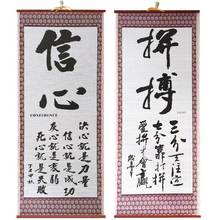 信心
CONFIDENCE
决心就是力量
信心就是成功
死心就是失败
拼搏
三分天注定
七分靠打拼
爱拼才会赢